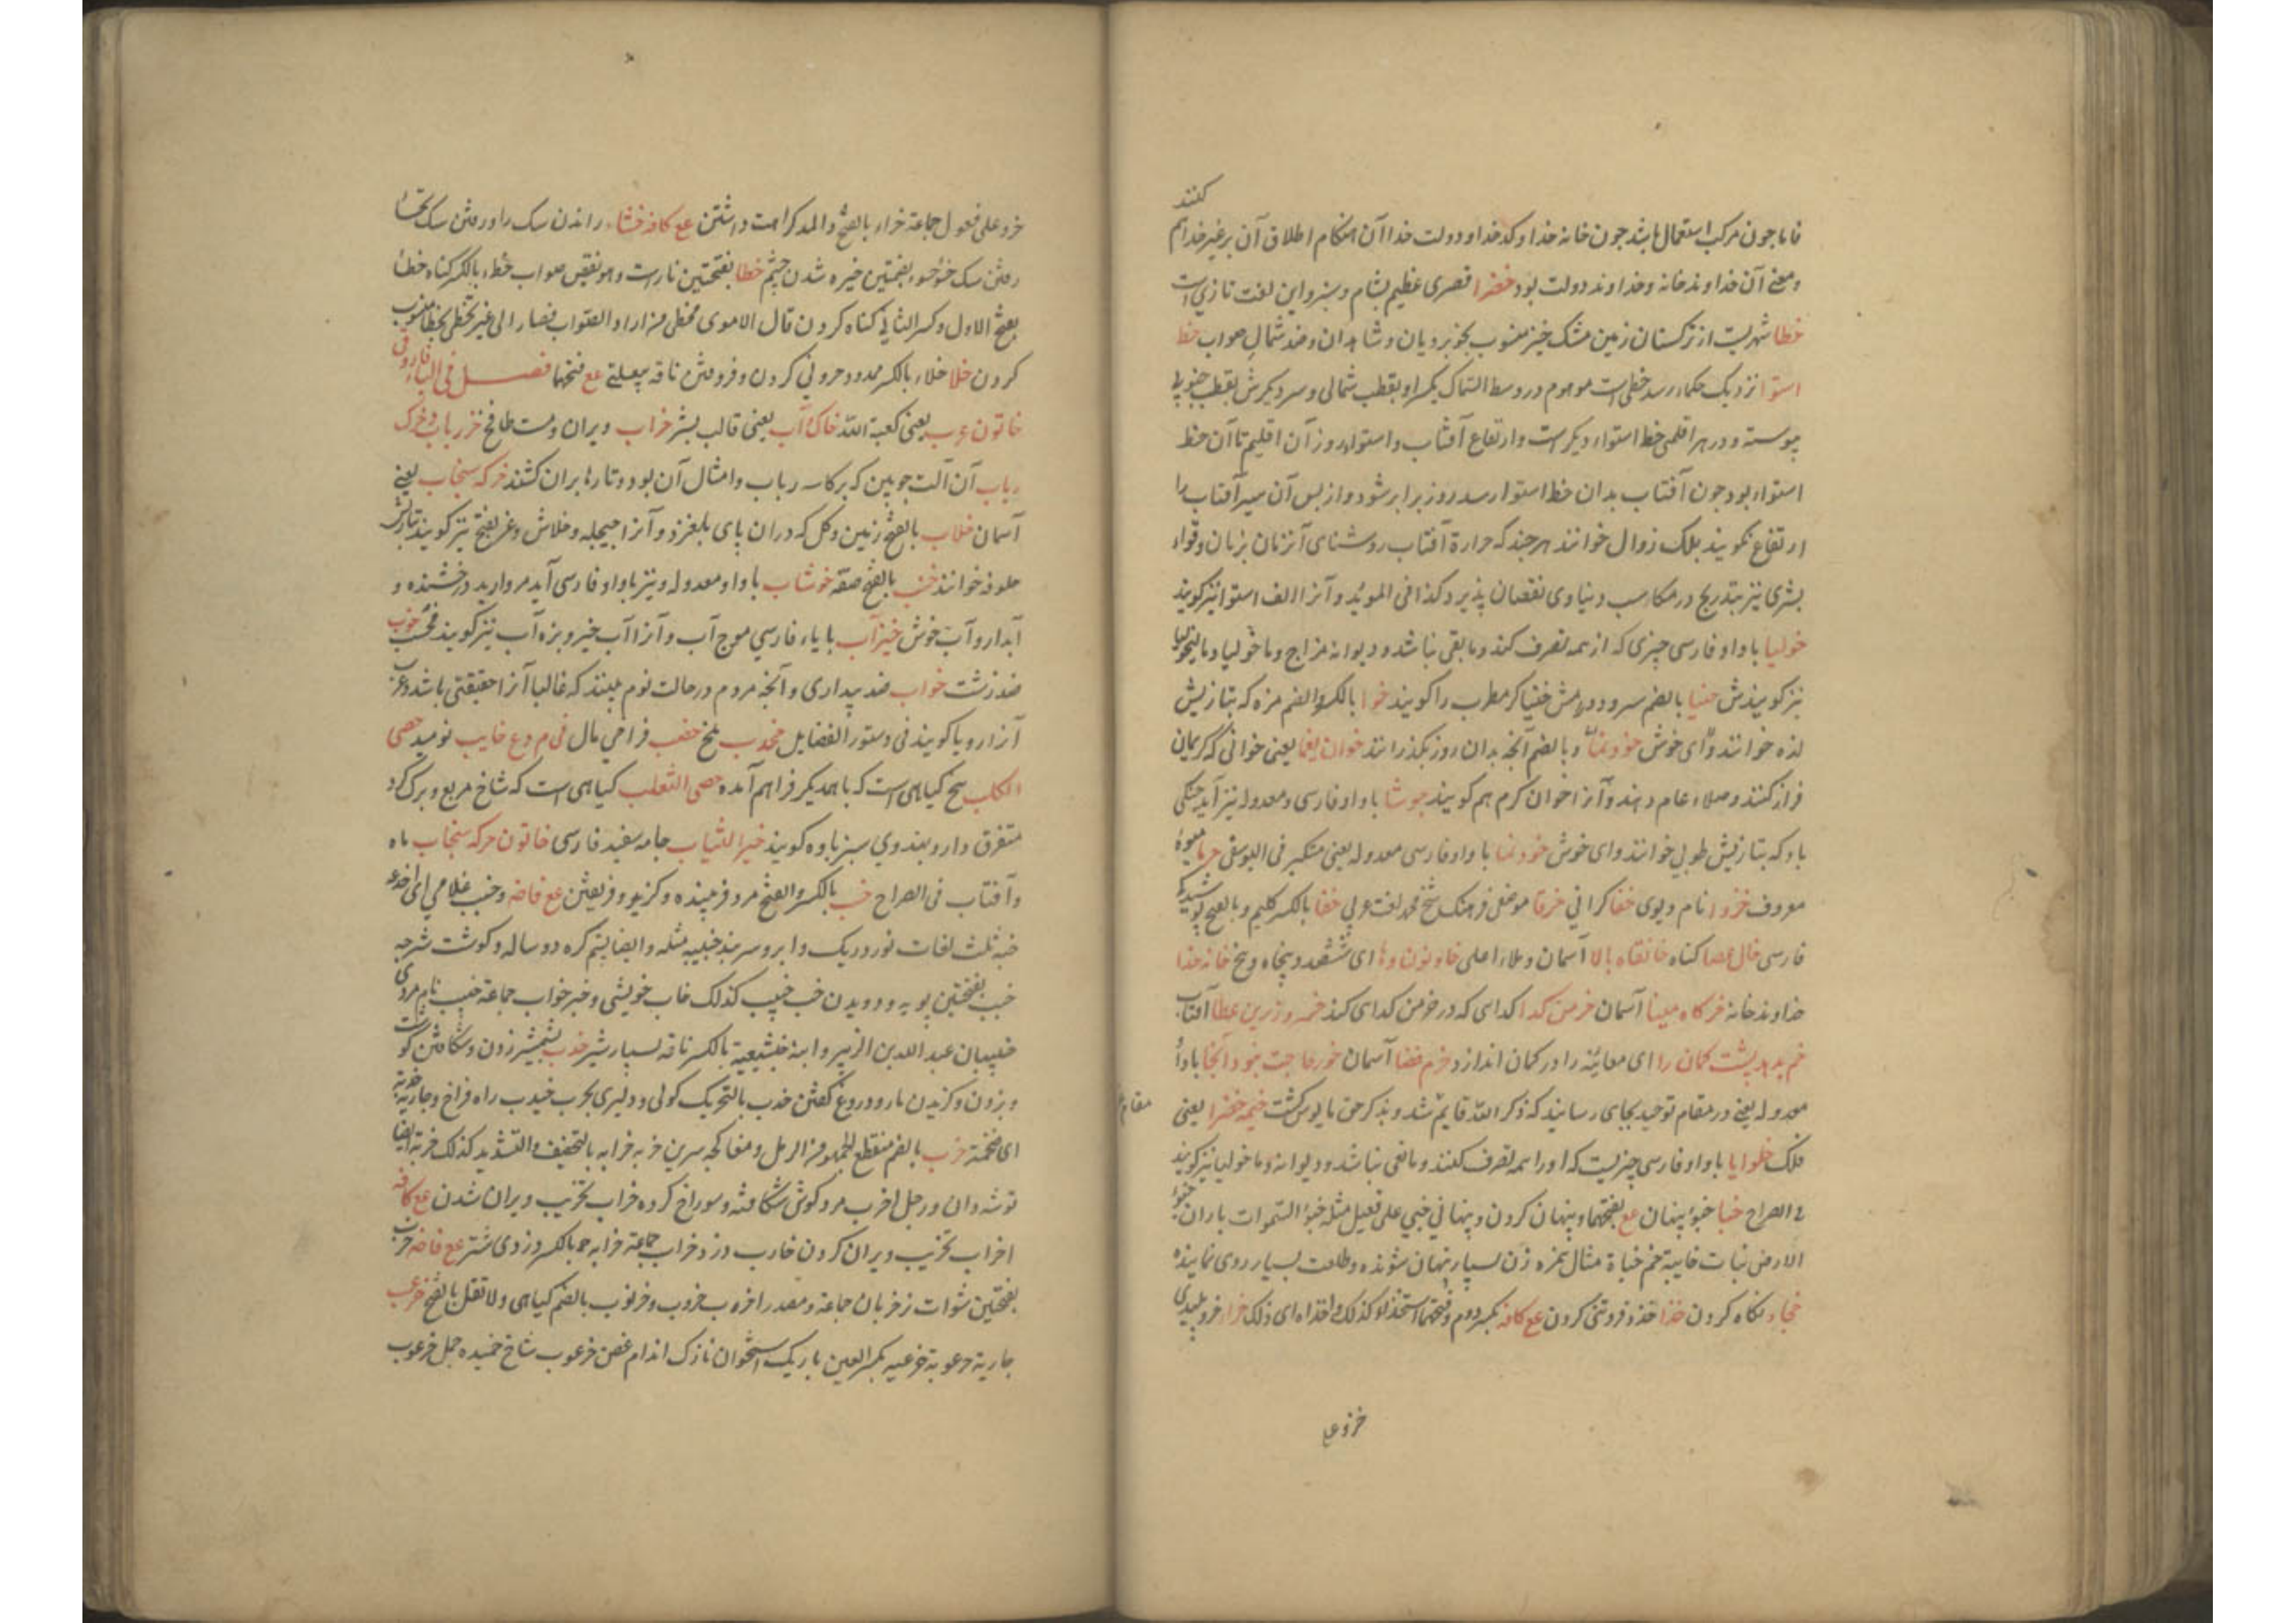 کنند
فاما چون مرکب استعمال باشد چون خانه خدا و کدخدا و دولت خدا آن هنگام اطلاق آن بر غیر خدا هم
و معنی آن خداوند خانه و خداوند دولت بود خضرا قصری عظیم بشام و سبز و این لغت تازی است
خطا شهریست از ترکستان زمین مشک خیز منسوب بخوبرویان و شاهدان و ضد شمال صواب خط
استوا نزدیک حکما رسد خطی است موهوم در وسط السماک یکسر او بقطب شمالی و سر دیکرش بقطب جنوبی
پیوسته و در هر اقلمی خط استواء دیکر است و ارتفاع آفتاب و استواء روز آن اقلیم تا آن خط
استواء بود چون آفتاب بدان خط استوا رسد روز برابر شود و از پس آن سیر آفتاب را
ارتفاع نکویند بلک زوال خوانند هر چند که حرارة آفتاب روشنای آن زمان بزمان و قواء
بشری نیز بتدریج در مکاسب دنیاوی نقصان پذیرد کذا فی الموید و آنرا الف استوا نیز کویند
خولیا باواو فارسی چیزی که از همه تصرف کند و مابقی نباشد و دیوانه مزاج و ماخولیا و مالیخولیا
نیز کویندش خنیا بالضم سرود و مش خنیاکر مطرب را کویند خوا بالکسر و الضم مزه که بتازیش
لذه خوانند و ای خوش خودنما و بالضم آنچه بدان روز بکذرانند خوان یغما یعنی خوانی که کریمان
فراز کنند و صلاء عام دهند و آنرا خوان کرم هم کویند جوشا باواو فارسی و معدوله نیز آید خنکی
باد که بتازیش طوبی خوانند و ای خوش خودنما باواو فارسی معدوله یعنی متکبر فی الیوسفی خرما میوهٔ
معروف خزوا نام دیوی خفا کرانی خرقا موضعی فرهنک شیخ محمد لغت عربی خفا بالکسر کلیم و بالفتح پوشیدکی
فارسی خال عصا کناه خانقاه بالا آسمان و ملاء اعلی خاونون وها ای ششصد و پنجاه و پنج خانه خدا
خداوند خانه خرکاه مینا آسمان خرمن کدا کدای که در خرمن کدای کند خسرو زرین عطا آفتاب
خم بدهد پشت کمان را ای معاینه را در کمان اندازد خرم فضا آسمان خور حاجت نبود آنجا باواو
معدوله یعنی در مقام توحید بجای رسانید که ذکر الله قایم شد و بذکر حق مایوس کشت خیمه خضرا یعنی
فلک خلوایا باواو فارسی چیزیست که او را همه تصرف کنند و مابقی نباشد و دیوانه و ماخولیا نیز کویند
فی الصراح خبا خبؤ پنهان عع بفتحهما و پنهان کردن و پنهانی خبی علی فعیل مثله خبؤ السموات باران خبؤ
الارض نبات خابیة خم خباة مثال همزه زن بسیار پنهان شونده و طلعت بسیار روی نماینده
خجاء نکاه کردن خذا خذء فروتنی کردن عع کافه بکسر دوم و فتحهما استخذا کذلک اخذاه ای ذلک خراء خرو پلیدی
خرو علی
خرو علی فعول جماعة خراء بالفتح و المد کراهت داشتن عع کافه خشاء راندن سک را و رفتن سک
رفتن سک خوخسوء بضمتین خیره شدن چشم خطا بفتحتین ناراست وهو نقیض صواب خطاء بالکسر کناه خطا
بفتح الاول و کسر الثانی کناه کردن قال الاموی مخطی من اراد الصواب فصار الی غیر
کردن خلا خلاء بالکسر ممدود حرونی کردن و فروماندن ناقه بیعلتی عع فتحهما فصل فی الباء فاروقی
خاتون عرب یعنی کعبة الله خاک و آب یعنی قالب بشر خراب ویران و مست طافح خر رباب و خرک
رباب آن آلت چوبین که بر کاسه رباب و امثال آن بود و تارها بران کشند خرکه سنجاب یعنی
آسمان خلاب بالفتح زمین و کل که دران پای بلغزد و آنرا جیجله و خلاش و غر بفتح نیز کویند بتازیش
خوانند خنب بالفتح صفه خوشاب باواو معدوله و نیز باواو فارسی آید مروارید درخشنده و
آبدار و آب خوش خیزآب بایاء فارسی موج آب و آنرا آب خیز و بزه آب نیز کویند خوب
ضد زشت خواب ضد بیداری و آنچه مردم در حالت نوم بینند که غالبا آنرا حقیقتی باشد و عرب
آنرا رویا کویند فی دستور الفضایل خضب فراخی مال خایب نومید خصی
الکلب بیخ کیاهی است که با همدیکر فراهم آمده خصی الثعلب کیاهی است که شاخ مربع و برک کرد
متفرق دارد بهندوی سبز باوه کویند خیر الثیاب جامه سفید فارسی خاتون خرکه سنجاب ماه
و آفتاب فی الصراح خب بالکسر و الفتح مرد فریبنده و کریز و فریفتن عع فاضه وخبب غلامی ای اخدعه
خبه ثلث لغات نورد ریک و ابر و سربند خبیبه مثله و ایضا پشم کره دو ساله و کوشت شرحه
خبب بفتحتین پویه و دویدن خب خبیب کذلک خاب خویشی و خبر خواب جماعة خبیب نام مردی
خبیبان عبد الله بن الزبیر و ابنه خنثعبة بالکسر ناقه بسیار شیر خدب بشمشیر زدن و شکافتن کوشت
و بزدن و کزیدن مار و دروغ کفتن خدب بالتحریک کولی و دلیری خیدب راه فراخ و جاریه خدبة
ای ضخمة خرب بالضم منقطع الجمهور من الرمل و مغاکچه سرین خربه خرابه بالتخفیف و التشدید کذلک خربة ایضا
توشه دان و رجل اخرب مرد کوش شکافته و سوراخ کرده خراب تخریب ویران شدن عع کافه
اخراب تخریب ویران کردن خارب دزد خراب جماعة خرابه بالکسر دزدی شتر عع فاضه خرب
بفتحتین شوات نر خربان جماعة و مصدر اخرب خروب و خرنوب بالضم کیاهی ولا تقل بالفتح خرعب
جاریة خرعوبة خرعبه بکسر العین باریک استخوان نازک اندام غصن خرعوب شاخ خمیده جمل خرعوب